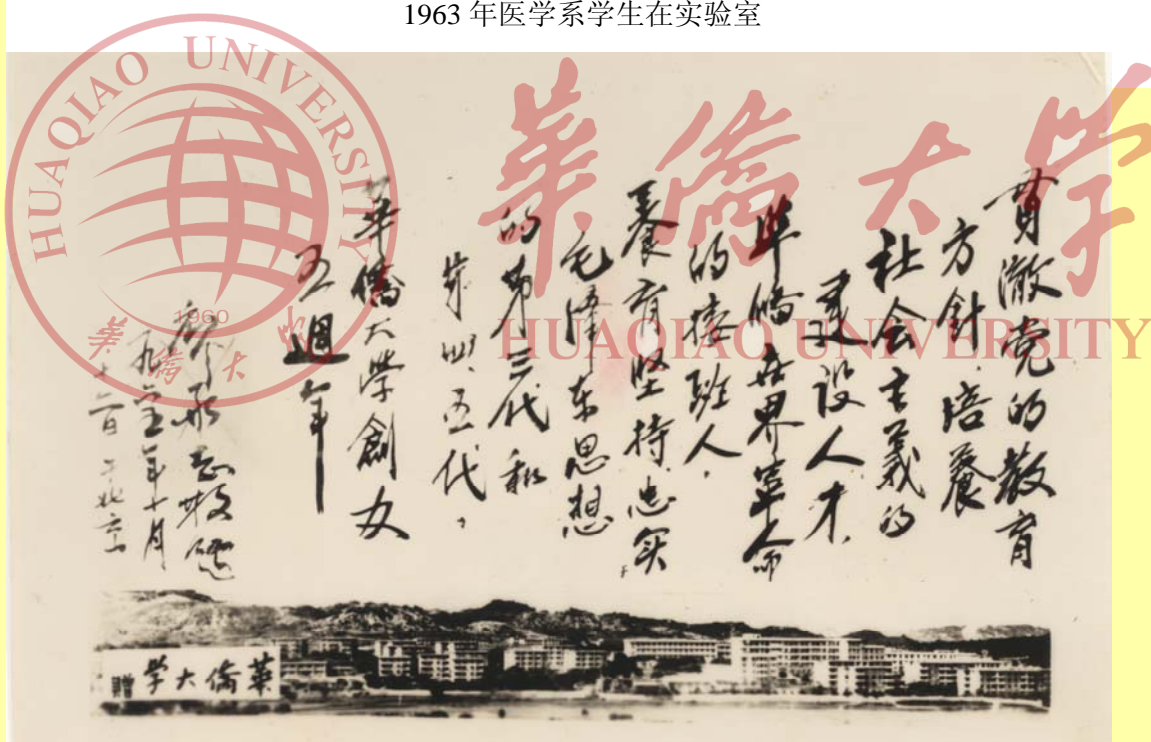 1963 年医学系学生在实验室
HUAQIAO UNIVERSITY
1960
華僑大学
華僑大学
HUAQIAO UNIVERSITY
貫澈党的教育
方針,培養
社会主義的
建设人才,
準備世界革命
的接班人,
养育坚持,忠实
毛澤东思想
的第三代和
第四、五代。
华僑大学創办
五週年
廖承志敬题
一九六五年十月
十六日于北京
華僑大学
贈